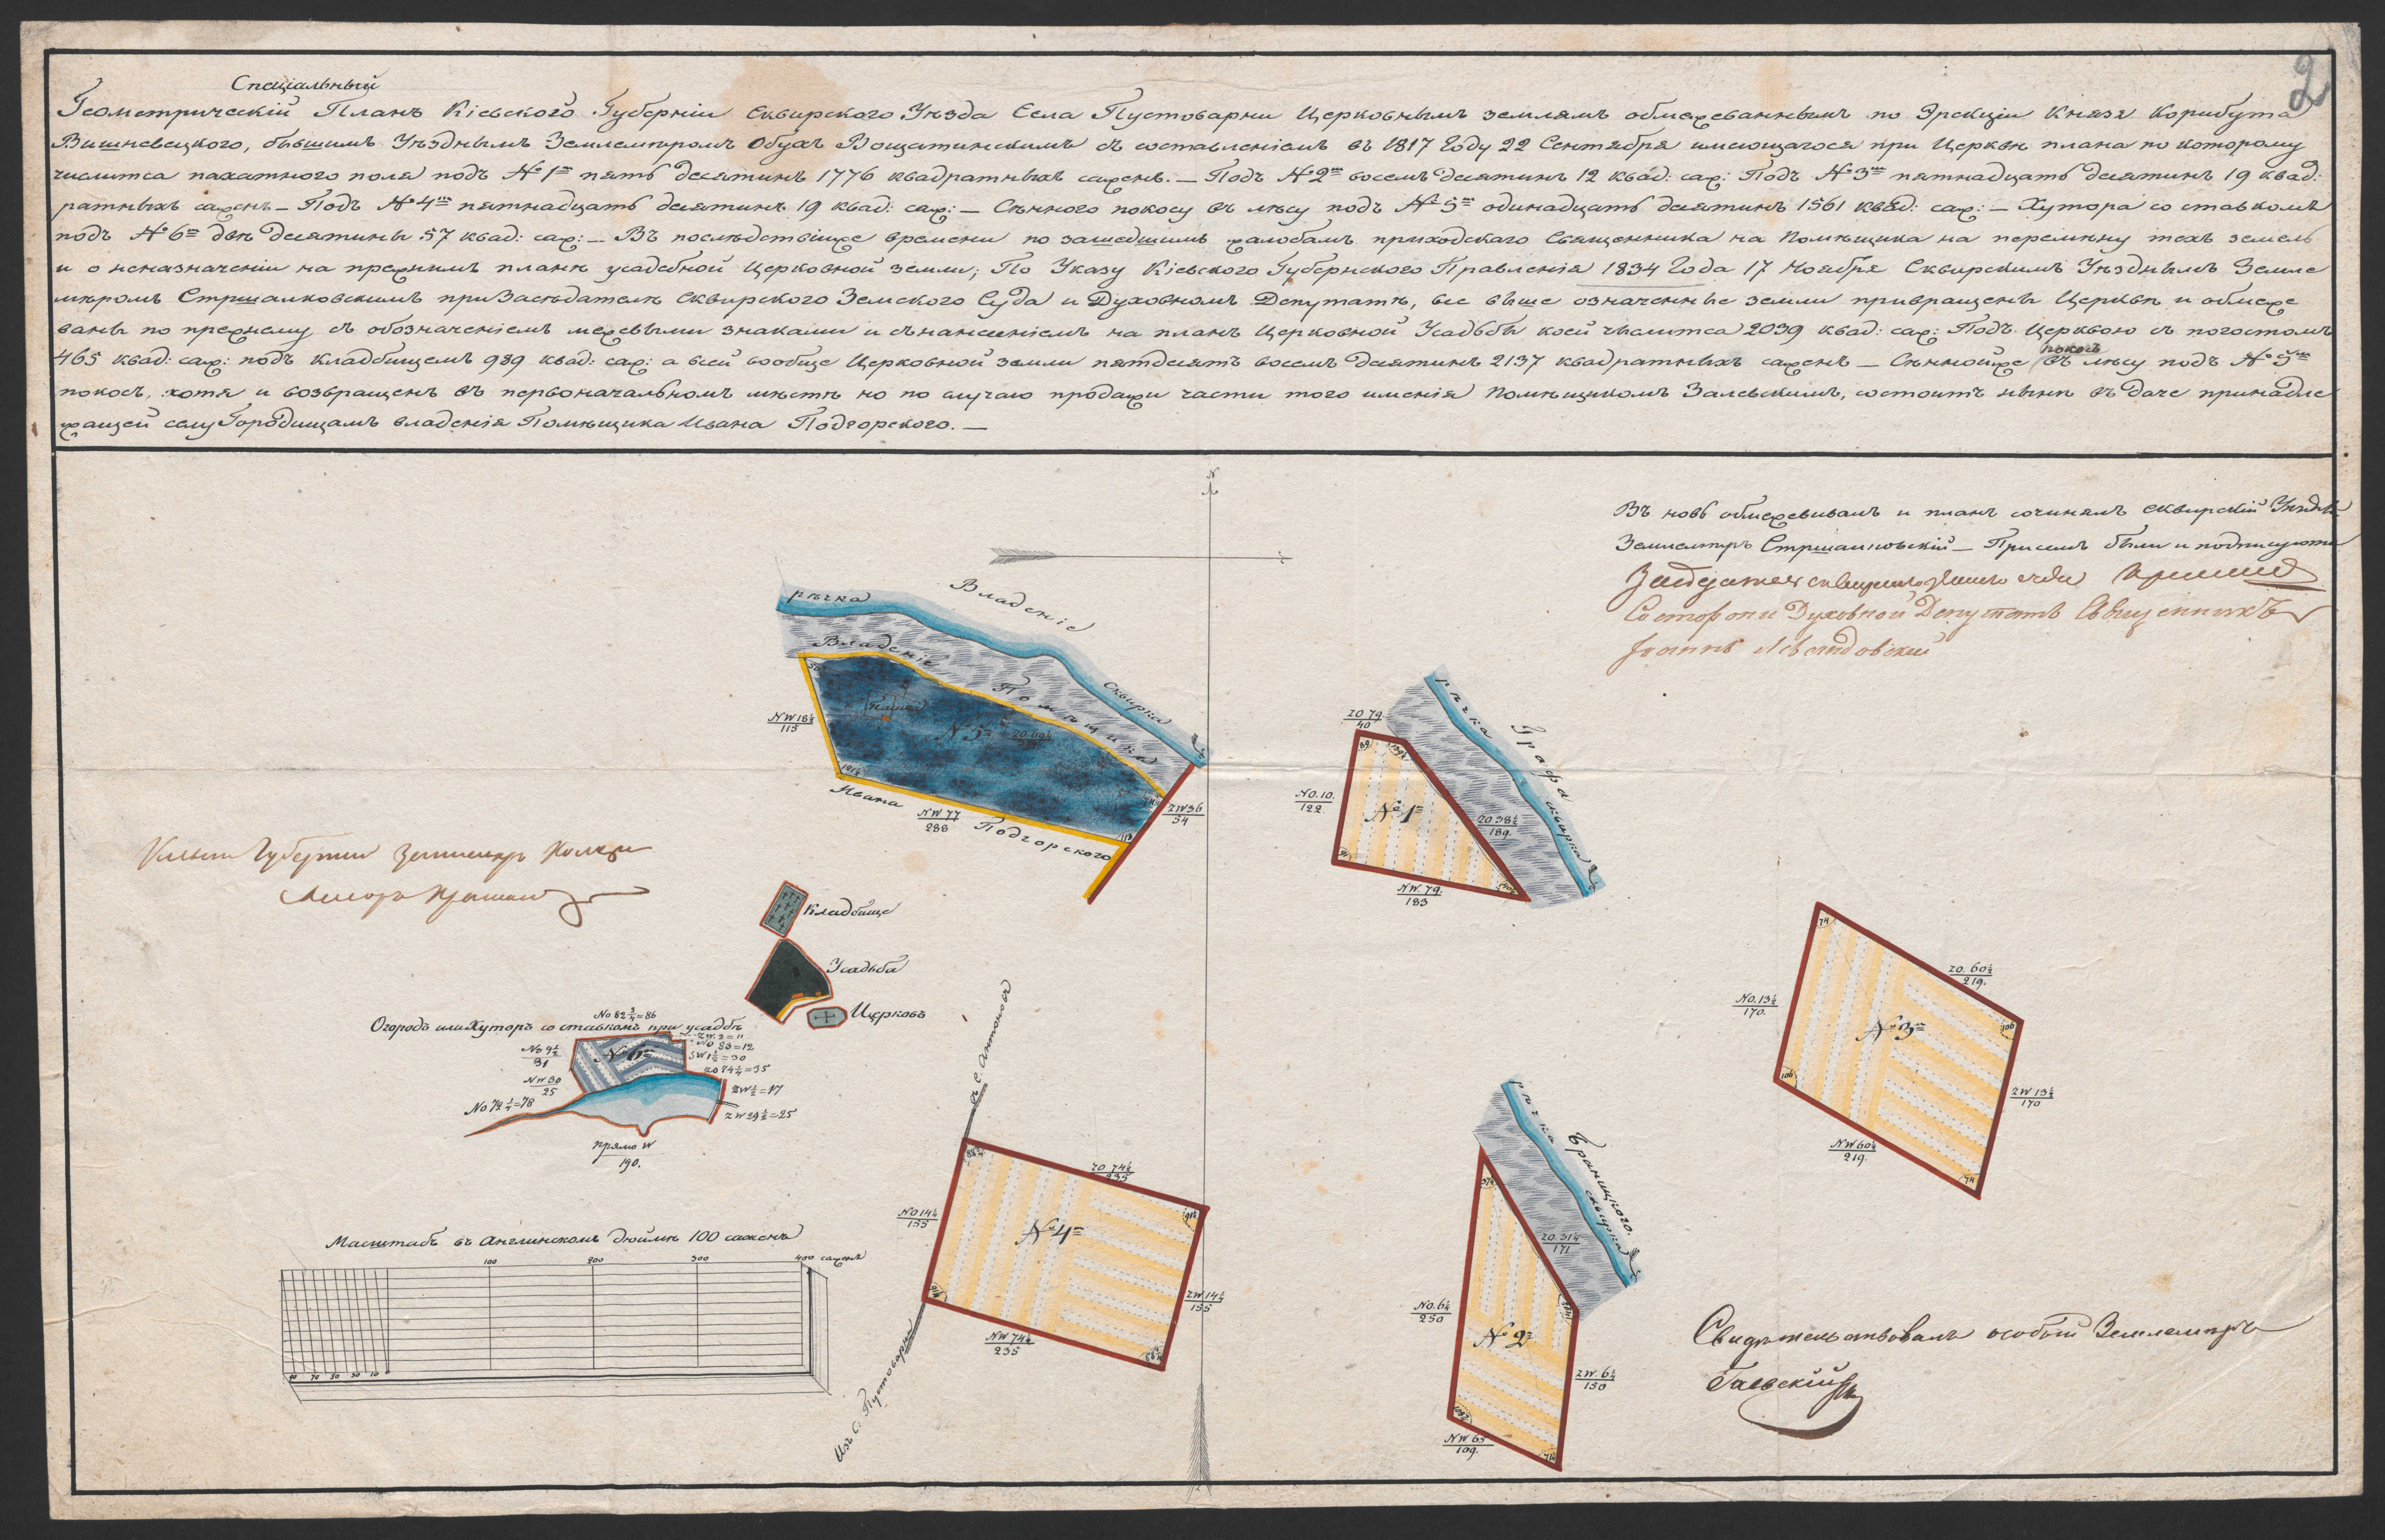 2
Спеціальный
Геометрическій Планъ Кіевского Губерніи Сквирского Уѣзда Села Пустоварни Церковнымъ землямъ обмежеваннымъ по Эрекціи Князя Корибута
Вишневецкого, бывшимъ Уѣзднымъ Землемѣромъ Обухъ Вощатинскимъ съ составленіемъ въ 1817 Году 22 Сентября имеющагося при Церквѣ плана по которому
числится пахатного поля подъ №1мъ пять десятинъ 1776 квадратныхъ сажень. — Подъ №2мъ восемъ десятинъ 12 квад: саж: Подъ №3мъ пятнадцать десятинъ 19 квад:
ратныхъ сажень — Подъ №4мъ пятнадцать десятинъ 19 квад: саж: — Сѣнного покосу въ лѣсу подъ №5мъ одинадцать десятинъ 1561 квад: саж: — Хутора со ставкомъ
подъ №6мъ двѣ десятины 57 квад: саж: — Въ послѣдствіиже времени по зашедшимъ жалобамъ приходскаго Священника на Помѣщика на перемѣну тѣхъ земель
и о неназначеніи на прежнимъ планѣ усадебной Церковной земли; По Указу Кіевского Губернского Правленія 1834 Года 17 Ноября Сквирскимъ Уѣзднымъ Земле
мѣромъ Стршалковскимъ при Засѣдателѣ Сквирского Земского Суда и Духовномъ Депутатѣ, все выше означенные земли привращены Церквѣ и обмеже
ваны по прежнему съ обозначеніемъ межевыми знаками и съ нанесеніемъ на планъ Церковной Усадьбы коей числится 2039 квад: саж: Подъ Церквою съ погостомъ
465 квад: саж: подъ кладбищемъ 989 квад: саж: а всей вообще Церковной земли пятдесятъ восемъ десятинъ 2137 квадратныхъ сажень — Сѣннойже покосъ въ лѣсу подъ №5мъ
покосъ, хотя и возвращенъ въ первоначальномъ мѣстѣ но по случаю продажи части того именія Помѣщикомъ Залевскимъ, состоитъ нынѣ въ даче принадле
жащей селу Городищамъ владенія Помѣщика Ивана Подгорского. —
N
Въ новь обмежевивалъ и планъ сочинялъ Сквирскій Уѣздн
Землемѣръ Стршалковскій — Присемъ были и подписуются
Со стороны Духовной Депутатъ Священникъ
Іоаннъ
рѣчка
Владеніе
Сквирка
Владеніе Помѣщика
№5й
NW 18½
115
NW 77
288
ZW 36
54
Ивана Подгорского
рѣчка
Графа
сквирка
ZO 79
40
№1й
NO. 10.
122
ZO 38½
189.
NW. 79.
183
Кладбище
Усадьба
Церковь
Огородъ или Хуторъ со ставкомъ при усадбѣ
No 82¾=86
№6й
No 9½
31
NW 30
25
No 72¼=78
ZW. 2=11
No 83=12
SW 1½=30
ZO 84¼=35
ZW½=17
ZW 29½=25
прямо W
190.
74
ZO. 60½
219.
NO. 13½
170.
№3й
106
106
ZW 13½
170
NW 60½
219.
74
въ с. Антоновъ
ZO 74½
235
NO 14½
155
№4й
ZW 14½
155
NW 74½
235
Изъ С. Пустоварни
рѣчка
Браницкого.
сквирка
ZO. 31½
171
NO. 6½
250
№2й
ZW. 6½
150
NW 65
109.
Масштабъ въ Англинскомъ Дюймѣ 100 сажень
100 200 300 400 сажень
90 70 50 30 10
Свидѣтельствовалъ особый Землемѣръ
Гаевскій